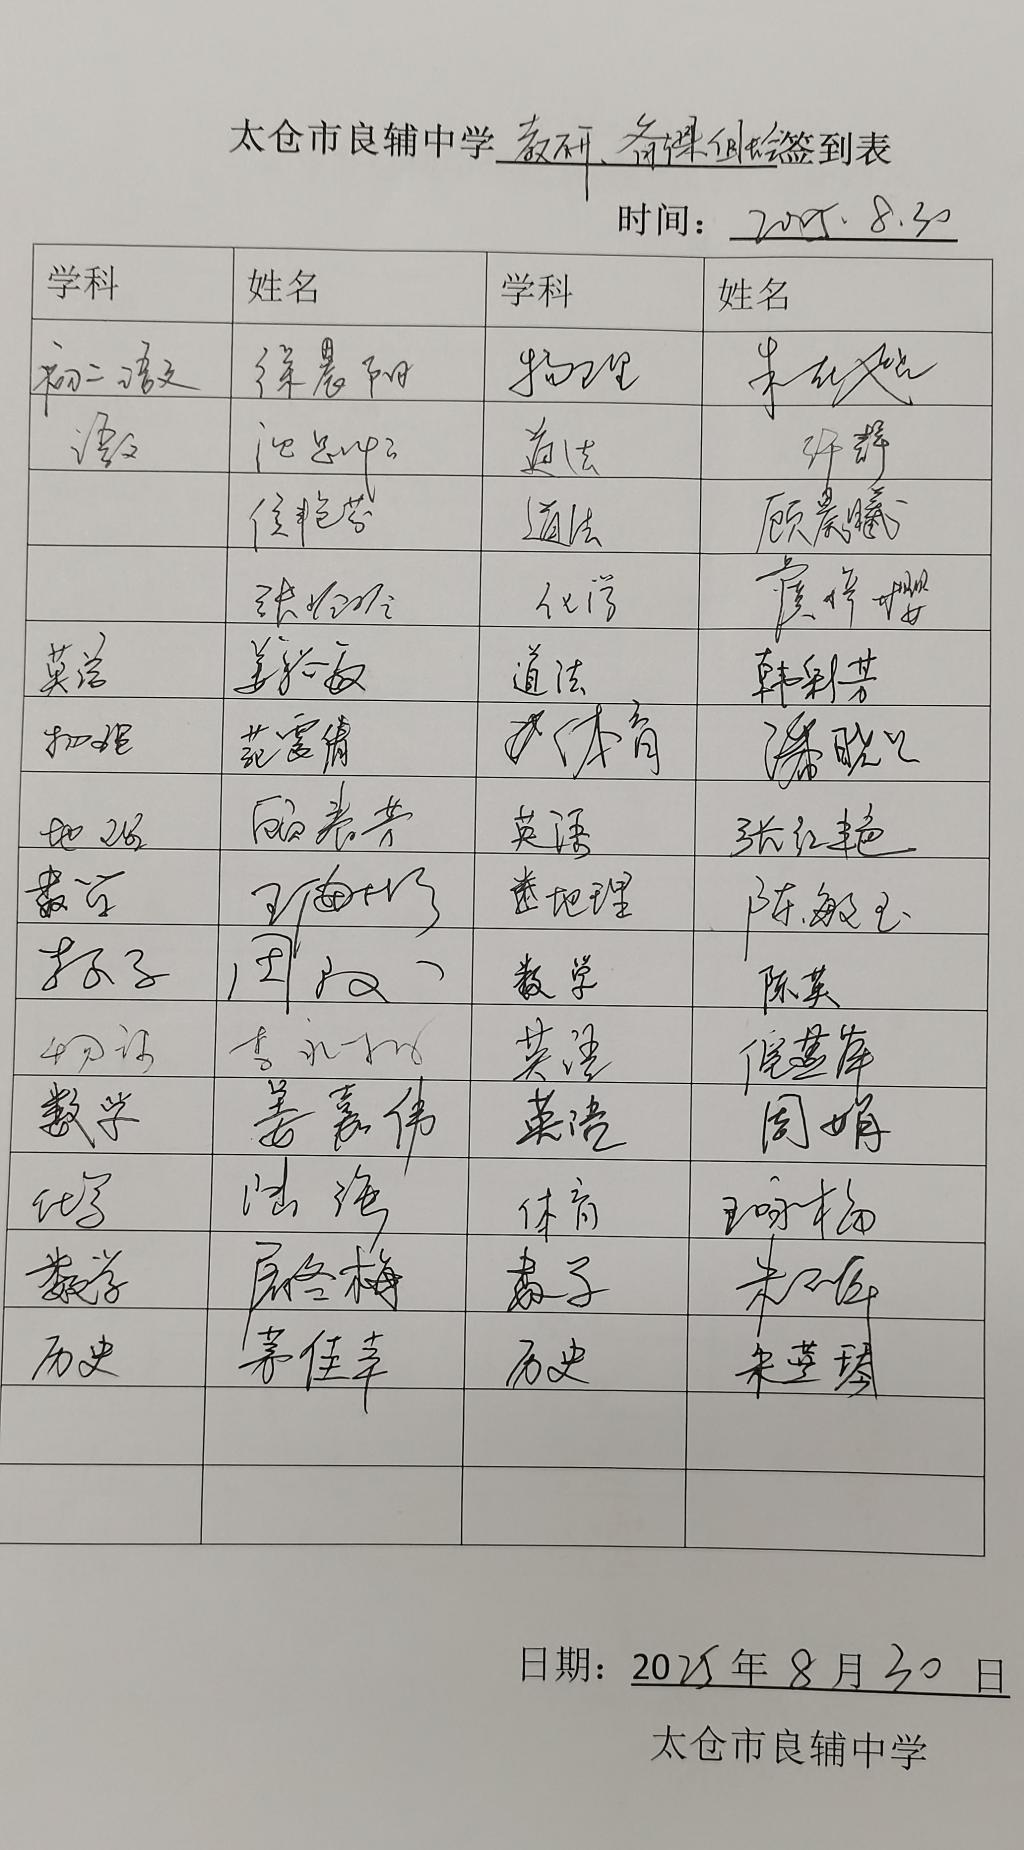 太仓市良辅中学教研、备课组会签到表
时间：2025.8.30
学科 姓名 学科 姓名
初二语文 徐晨阳 物理 朱
语文 沈 道法 许静
侯艳芬 道法 顾晨曦
张 化学 虞 樱
英语 姜 敏 道法 韩彩芳
物理 范雯倩 体育 潘晓
地理 顾 芳 英语 张红艳
数学 王 地理 陈敏玉
数学 周 数学 陈英
物理 李 英语 倪燕萍
数学 姜嘉伟 英语 周娟
化学 陆 体育 王咏梅
数学 居冬梅 数学 朱
历史 茅佳幸 历史 朱燕琴
日期：2025年8月30日
太仓市良辅中学